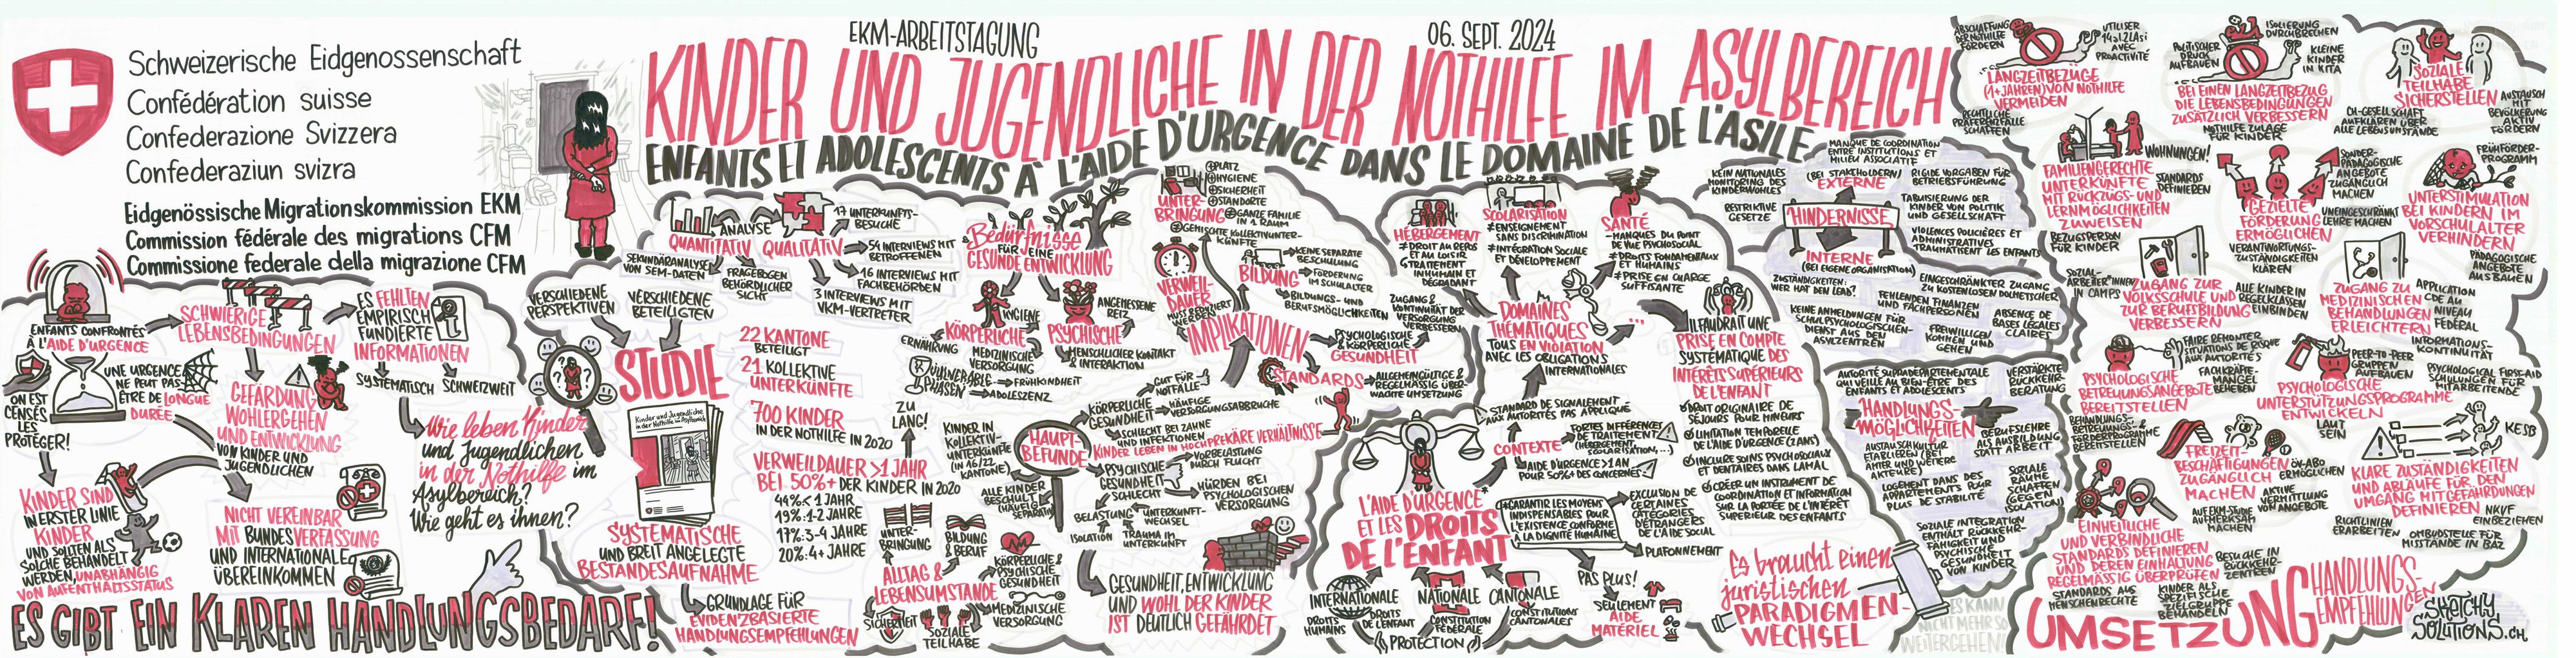 Schweizerische Eidgenossenschaft
Confédération suisse
Confederazione Svizzera
Confederaziun svizra
Eidgenössische Migrationskommission EKM
Commission fédérale des migrations CFM
Commissione federale della migrazione CFM
EKM-ARBEITSTAGUNG
06. SEPT. 2024
KINDER UND JUGENDLICHE IN DER NOTHILFE IM ASYLBEREICH
ENFANTS ET ADOLESCENTS À L'AIDE D'URGENCE DANS LE DOMAINE DE L'ASILE
ENFANTS CONFRONTÉS
À L'AIDE D'URGENCE
UNE URGENCE
NE PEUT PAS
ÊTRE DE LONGUE
DURÉE
ON EST
CENSÉS
LES
PROTÉGER!
KINDER SIND
IN ERSTER LINIE
KINDER
UND SOLLTEN ALS
SOLCHE BEHANDELT
WERDEN, UNABHÄNGIG
VON AUFENTHALTSSTATUS
SCHWIERIGE
LEBENSBEDINGUNGEN
GEFÄRDUNG
WOHLERGEHEN
UND ENTWICKLUNG
VON KINDER UND
JUGENDLICHEN
NICHT VEREINBAR
MIT BUNDESVERFASSUNG
UND INTERNATIONALE
ÜBEREINKOMMEN
ES FEHLTEN
EMPIRISCH
FUNDIERTE
INFORMATIONEN
SYSTEMATISCH
SCHWEIZWEIT
Wie leben Kinder
und Jugendlichen
in der Nothilfe im
Asylbereich?
Wie geht es ihnen?
ES GIBT EIN KLAREN HANDLUNGSBEDARF!
VERSCHIEDENE
PERSPEKTIVEN
VERSCHIEDENE
BETEILIGTEN
STUDIE
Kinder und Jugendliche
in der Nothilfe im Asylbereich
SYSTEMATISCHE
UND BREIT ANGELEGTE
BESTANDESAUFNAHME
GRUNDLAGE FÜR
EVIDENZBASIERTE
HANDLUNGSEMPFEHLUNGEN
ANALYSE
QUANTITATIV
QUALITATIV
SEKUNDÄRANALYSE
VON SEM-DATEN
FRAGEBOGEN
BEHÖRDLICHER
SICHT
17 UNTERKUNFTS-
BESUCHE
54 INTERVIEWS MIT
BETROFFENEN
16 INTERVIEWS MIT
FACHBEHÖRDEN
3 INTERVIEWS MIT
VKM-VERTRETER
22 KANTONE
BETEILIGT
21 KOLLEKTIVE
UNTERKÜNFTE
700 KINDER
IN DER NOTHILFE IN 2020
ZU
LANG!
VERWEILDAUER >1 JAHR
BEI 50%+ DER KINDER IN 2020
44% < 1 JAHR
19%: 1-2 JAHRE
17%: 3-4 JAHRE
20%: 4+ JAHRE
Bedürfnisse
FÜR EINE
GESUNDE ENTWICKLUNG
HYGIENE
KÖRPERLICHE
ERNÄHRUNG
MEDIZINISCHE
VERSORGUNG
PSYCHISCHE
ANGEMESSENE
REIZ
MENSCHLICHER KONTAKT
& INTERAKTION
VULNERABLE
PHASEN
FRÜHKINDHEIT
ADOLESZENZ
HAUPT-
BEFUNDE
KINDER IN
KOLLEKTIV-
UNTERKÜNFTE
(IN 16/22
KANTONE)
ALLE KINDER
BESCHULT
(HÄUFIG
SEPARAT)
KÖRPERLICHE
GESUNDHEIT
GUT FÜR
NOTFÄLLE
HÄUFIGE
VERSORGUNGSABBRUCHE
SCHLECHT BEI ZÄHNE
UND INFEKTIONEN
KINDER LEBEN IN HOCHPREKÄRE VERHÄLTNISSE
PSYCHISCHE
GESUNDHEIT
SCHLECHT
VORBELASTUNG
DURCH FLUCHT
HÜRDEN BEI
PSYCHOLOGISCHEN
VERSORGUNG
BELASTUNG
ISOLATION
UNTERKUNFT-
WECHSEL
TRAUMA IM
UNTERKUNFT
GESUNDHEIT, ENTWICKLUNG
UND WOHL DER KINDER
IST DEUTLICH GEFÄHRDET
UNTER-
BRINGUNG
BILDUNG
& BERUF
KÖRPERLICHE &
PSYCHISCHE
GESUNDHEIT
ALLTAG &
LEBENSUMSTÄNDE
MEDIZINISCHE
VERSORGUNG
SICHERHEIT
SOZIALE
TEILHABE
IMPLIKATIONEN
UNTER-
BRINGUNG
PLATZ
HYGIENE
SICHERHEIT
STANDORTE
GANZE FAMILIE
IN 1 RAUM
GEMISCHTE KOLLEKTIVUNTER-
KÜNFTE
VERWEIL-
DAUER
MUSS REDUZIERT
WERDEN
BILDUNG
KEINE SEPARATE
BESCHULUNG
FÖRDERUNG
IM SCHULALTER
BILDUNGS- UND
BERUFSMÖGLICHKEITEN
ZUGANG &
KONTINUITÄT DER
VERSORGUNG
VERBESSERN
PSYCHOLOGISCHE
& KÖRPERLICHE
GESUNDHEIT
STANDARDS
ALLGEMEINGÜLTIGE &
REGELMÄSSIG ÜBER-
WACHTE UMSETZUNG
HÉBERGEMENT
≠ DROIT AU REPOS
ET AU LOISIR
≠ TRAITEMENT
INHUMAIN ET
DÉGRADANT
SCOLARISATION
≠ ENSEIGNEMENT
SANS DISCRIMINATION
≠ INTÉGRATION SOCIALE
ET DÉVELOPPEMENT
SANTÉ
- MANQUES DU POINT
DE VUE PSYCHOSOCIAL
≠ DROITS FONDAMENTAUX
ET HUMAINS
≠ PRISE EN CHARGE
SUFFISANTE
DOMAINES
THÉMATIQUES
TOUS EN VIOLATION
AVEC LES OBLIGATIONS
INTERNATIONALES
...
IL FAUDRAIT UNE
PRISE EN COMPTE
SYSTÉMATIQUE DES
INTÉRÊTS SUPÉRIEURS
DE L'ENFANT
DROIT ORIGINAIRE DE
SÉJOURS POUR MINEURS
LIMITATION TEMPORELLE
DE L'AIDE D'URGENCE (2 ANS)
INCLURE SOINS PSYCHOSOCIAUX
ET DENTAIRES DANS LAMAL
CRÉER UN INSTRUMENT DE
COORDINATION ET INFORMATION
SUR LA PORTÉE DE L'INTÉRÊT
SUPERIEUR DES ENFANTS
STANDARD DE SIGNALEMENT
AUX AUTORITÉS PAS APPLIQUÉ
CONTEXTE
FORTES DIFFÉRENCES
DE TRAITEMENT
(HÉBERGEMENT,
SCOLARISATION, ...)
AIDE D'URGENCE > 1 AN
POUR 50%+ DES CONCERNÉS
L'AIDE D'URGENCE
ET LES DROITS
DE L'ENFANT
GARANTIR LES MOYENS
INDISPENSABLES POUR
L'EXISTENCE CONFORME
À LA DIGNITÉ HUMAINE
EXCLUSION DE
CERTAINES
CATÉGORIES
D'ÉTRANGERS
DE L'AIDE SOCIAL
PLAFONNEMENT
PAS PLUS!
SEULEMENT
AIDE
MATÉRIEL
INTERNATIONALE
NATIONALE
CANTONALE
DROITS
HUMAINS
DROITS
DE L'ENFANT
CONSTITUTION
FÉDÉRALE
CONSTITUTIONS
CANTONALES
PROTECTION
Es braucht einen
juristischen
PARADIGMEN-
WECHSEL
ES KANN
NICHT MEHR SO
WEITERGEHEN!
HINDERNISSE
(BEI STAKEHOLDERN)
EXTERNE
MANQUE DE COORDINATION
ENTRE INSTITUTIONS ET
MILIEU ASSOCIATIF
KEIN NATIONALES
MONITORING DES
KINDERWOHLES
RESTRIKTIVE
GESETZE
RIGIDE VORGABEN FÜR
BETRIEBSFÜHRUNG
TABUISIERUNG DER
KINDER VON POLITIK
UND GESELLSCHAFT
VIOLENCES POLICIÈRES ET
ADMINISTRATIVES
TRAUMATISENT LES ENFANTS
INTERNE
(BEI EIGENE ORGANISATION)
ZUSTÄNDIGKEITEN:
WER HAT DEN LEAD?
EINGESCHRÄNKTER ZUGANG
ZU KOSTENLOSEN DOLMETSCHER
FEHLENDEN FINANZEN
UND FACHPERSONEN
KEINE ANMELDUNGEN FÜR
SCHULPSYCHOLOGISCHEN-
DIENST AUS DEN
ASYLZENTREN
FREIWILLIGEN
KOMMEN UND
GEHEN
ABSENCE DE
BASES LÉGALES
CLAIRES
HANDLUNGS-
MÖGLICHKEITEN
AUTORITÉ SUPRADÉPARTEMENTALE
QUI VEILLE AU BIEN-ÊTRE DES
ENFANTS ET ADOLESCENTS
VERSTÄRKTE
RÜCKKEHR-
BERATUNG
AUSTAUSCHKULTUR
ETABLIEREN (BEI
ÄMTER UND WEITERE
AKTEURE)
BERUFSLEHRE
ALS AUSBILDUNG
STATT ARBEIT
LOGEMENT DANS DES
APPARTEMENTS POUR
PLUS DE STABILITÉ
SOZIALE
RÄUME
SCHAFFEN
GEGEN
ISOLATION
SOZIALE INTEGRATION
ENTHÄLT RÜCKKEHR-
FÄHIGKEIT UND
PSYCHISCHE
GESUNDHEIT
VON KINDER
ABSCHAFFUNG
DER NOTHILFE
FÖRDERN
UTILISER
14 al.2 LAsi
AVEC
PROACTIVITÉ
LANGZEITBEZÜGE
(1+ JAHREN) VON NOTHILFE
VERMEIDEN
RECHTLICHE
PRÄZEDENZFÄLLE
SCHAFFEN
POLITISCHER
DRUCK
AUFBAUEN
ISOLIERUNG
DURCHBRECHEN
KLEINE
KINDER
IN KITA
BEI EINEN LANGZEITBEZUG
DIE LEBENSBEDINGUNGEN
ZUSÄTZLICH VERBESSERN
NOTHILFE ZULAGE
FÜR KINDER
SOZIALE
TEILHABE
SICHERSTELLEN
CH-GESELLSCHAFT
AUFKLÄREN ÜBER
ALLE LEBENSUMSTÄNDE
AUSTAUSCH
MIT
BEVÖLKERUNG
AKTIV
FÖRDERN
WOHNUNGEN!
FAMILIENGERECHTE
UNTERKÜNFTE
MIT RÜCKZUGS- UND
LERNMÖGLICHKEITEN
ZUWEISEN
STANDARDS
DEFINIEREN
BEZUGSPERSON
FÜR KINDER
SONDER-
PÄDAGOGISCHE
ANGEBOTE
ZUGÄNGLICH
MACHEN
GEZIELTE
FÖRDERUNG
ERMÖGLICHEN
UNEINGESCHRÄNKT
LEHRE MACHEN
VERANTWORTUNGS-
ZUSTÄNDIGKEITEN
KLÄREN
FRÜHFÖRDER-
PROGRAMM
UNTERSTIMULATION
BEI KINDERN IM
VORSCHULALTER
VERHINDERN
PÄDAGOGISCHE
ANGEBOTE
AUSBAUEN
SOZIAL-
ARBEITER*INNEN
IN CAMPS
ZUGANG ZUR
VOLKSSCHULE UND
ZUR BERUFSBILDUNG
VERBESSERN
ALLE KINDER IN
REGELKLASSEN
EINBINDEN
ZUGANG ZU
MEDIZINISCHEN
BEHANDLUNGEN
ERLEICHTERN
APPLICATION
CDE AU
NIVEAU
FÉDÉRAL
INFORMATIONS-
KONTINUITÄT
FAIRE REMONTER
SITUATIONS DE RISQUE
AUX AUTORITÉS
PSYCHOLOGISCHE
BETREUUNGSANGEBOTE
BEREITSTELLEN
FACHKRÄFTE-
MANGEL
BEHEBEN
PEER-TO-PEER
GRUPPEN
AUFBAUEN
PSYCHOLOGISCHE
UNTERSTÜTZUNGSPROGRAMME
ENTWICKELN
PSYCHOLOGICAL FIRST-AID
SCHULUNGEN FÜR
MITARBEITENDE
LAUT
SEIN
BEHANDLUNGS-
BETREUUNGS- &
FÖRDERPROGRAMME
BEREITSTELLEN
FREIZEIT-
BESCHÄFTIGUNGEN
ZUGÄNGLICH
MACHEN
ÖV-ABO
ERMÖGLICHEN
AKTIVE
VERMITTLUNG
VON ANGEBOTE
AUF EKM-STUDIE
AUFMERKSAM
MACHEN
KESB
KLARE ZUSTÄNDIGKEITEN
UND ABLÄUFE FÜR DEN
UMGANG MIT GEFÄHRDUNGEN
DEFINIEREN
NKVF
EINBEZIEHEN
RICHTLINIEN
ERARBEITEN
OMBUDSTELLE FÜR
MISSTÄNDE IN BAZ
EINHEITLICHE
UND VERBINDLICHE
STANDARDS DEFINIEREN
UND DEREN EINHALTUNG
REGELMÄSSIG ÜBERPRÜFEN
STANDARDS AUS
MENSCHENRECHTE
BESUCHE IN
RÜCKKEHR-
ZENTREN
KINDER ALS
SPEZIFISCHE
ZIELGRUPPE
BEHANDELN
UMSETZUNG
HANDLUNGS-
EMPFEHLUNGEN
SKETCHY
SOLUTIONS.CH